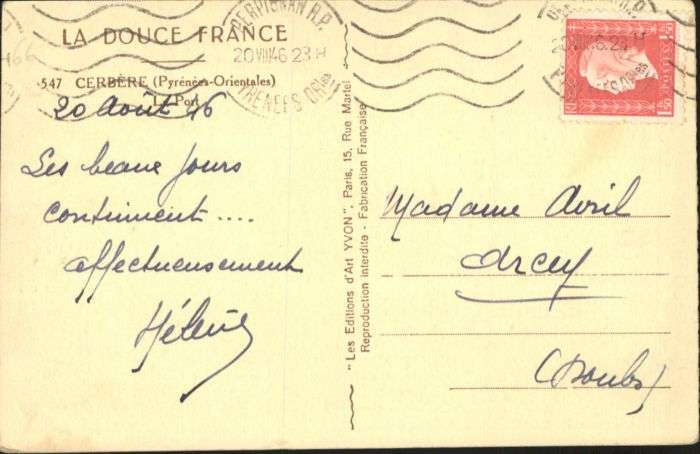 LA DOUCE FRANCE
547 CERBÈRE (Pyrénées-Orientales)
Le Port
20 Août 46
Les beaux jours
continuent ....
affectueusement
Hélène
"Les Editions d'Art YVON". Paris, 15, Rue Martel
Reproduction interdite - Fabrication Française
PERPIGNAN R.P.
20 VIII 46 23 H
PYRENEES ORles
1F50
Madame Avril
Arcey
(Doubs)